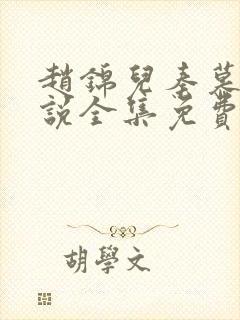 趙錦兒秦慕
說全集免費
胡學文